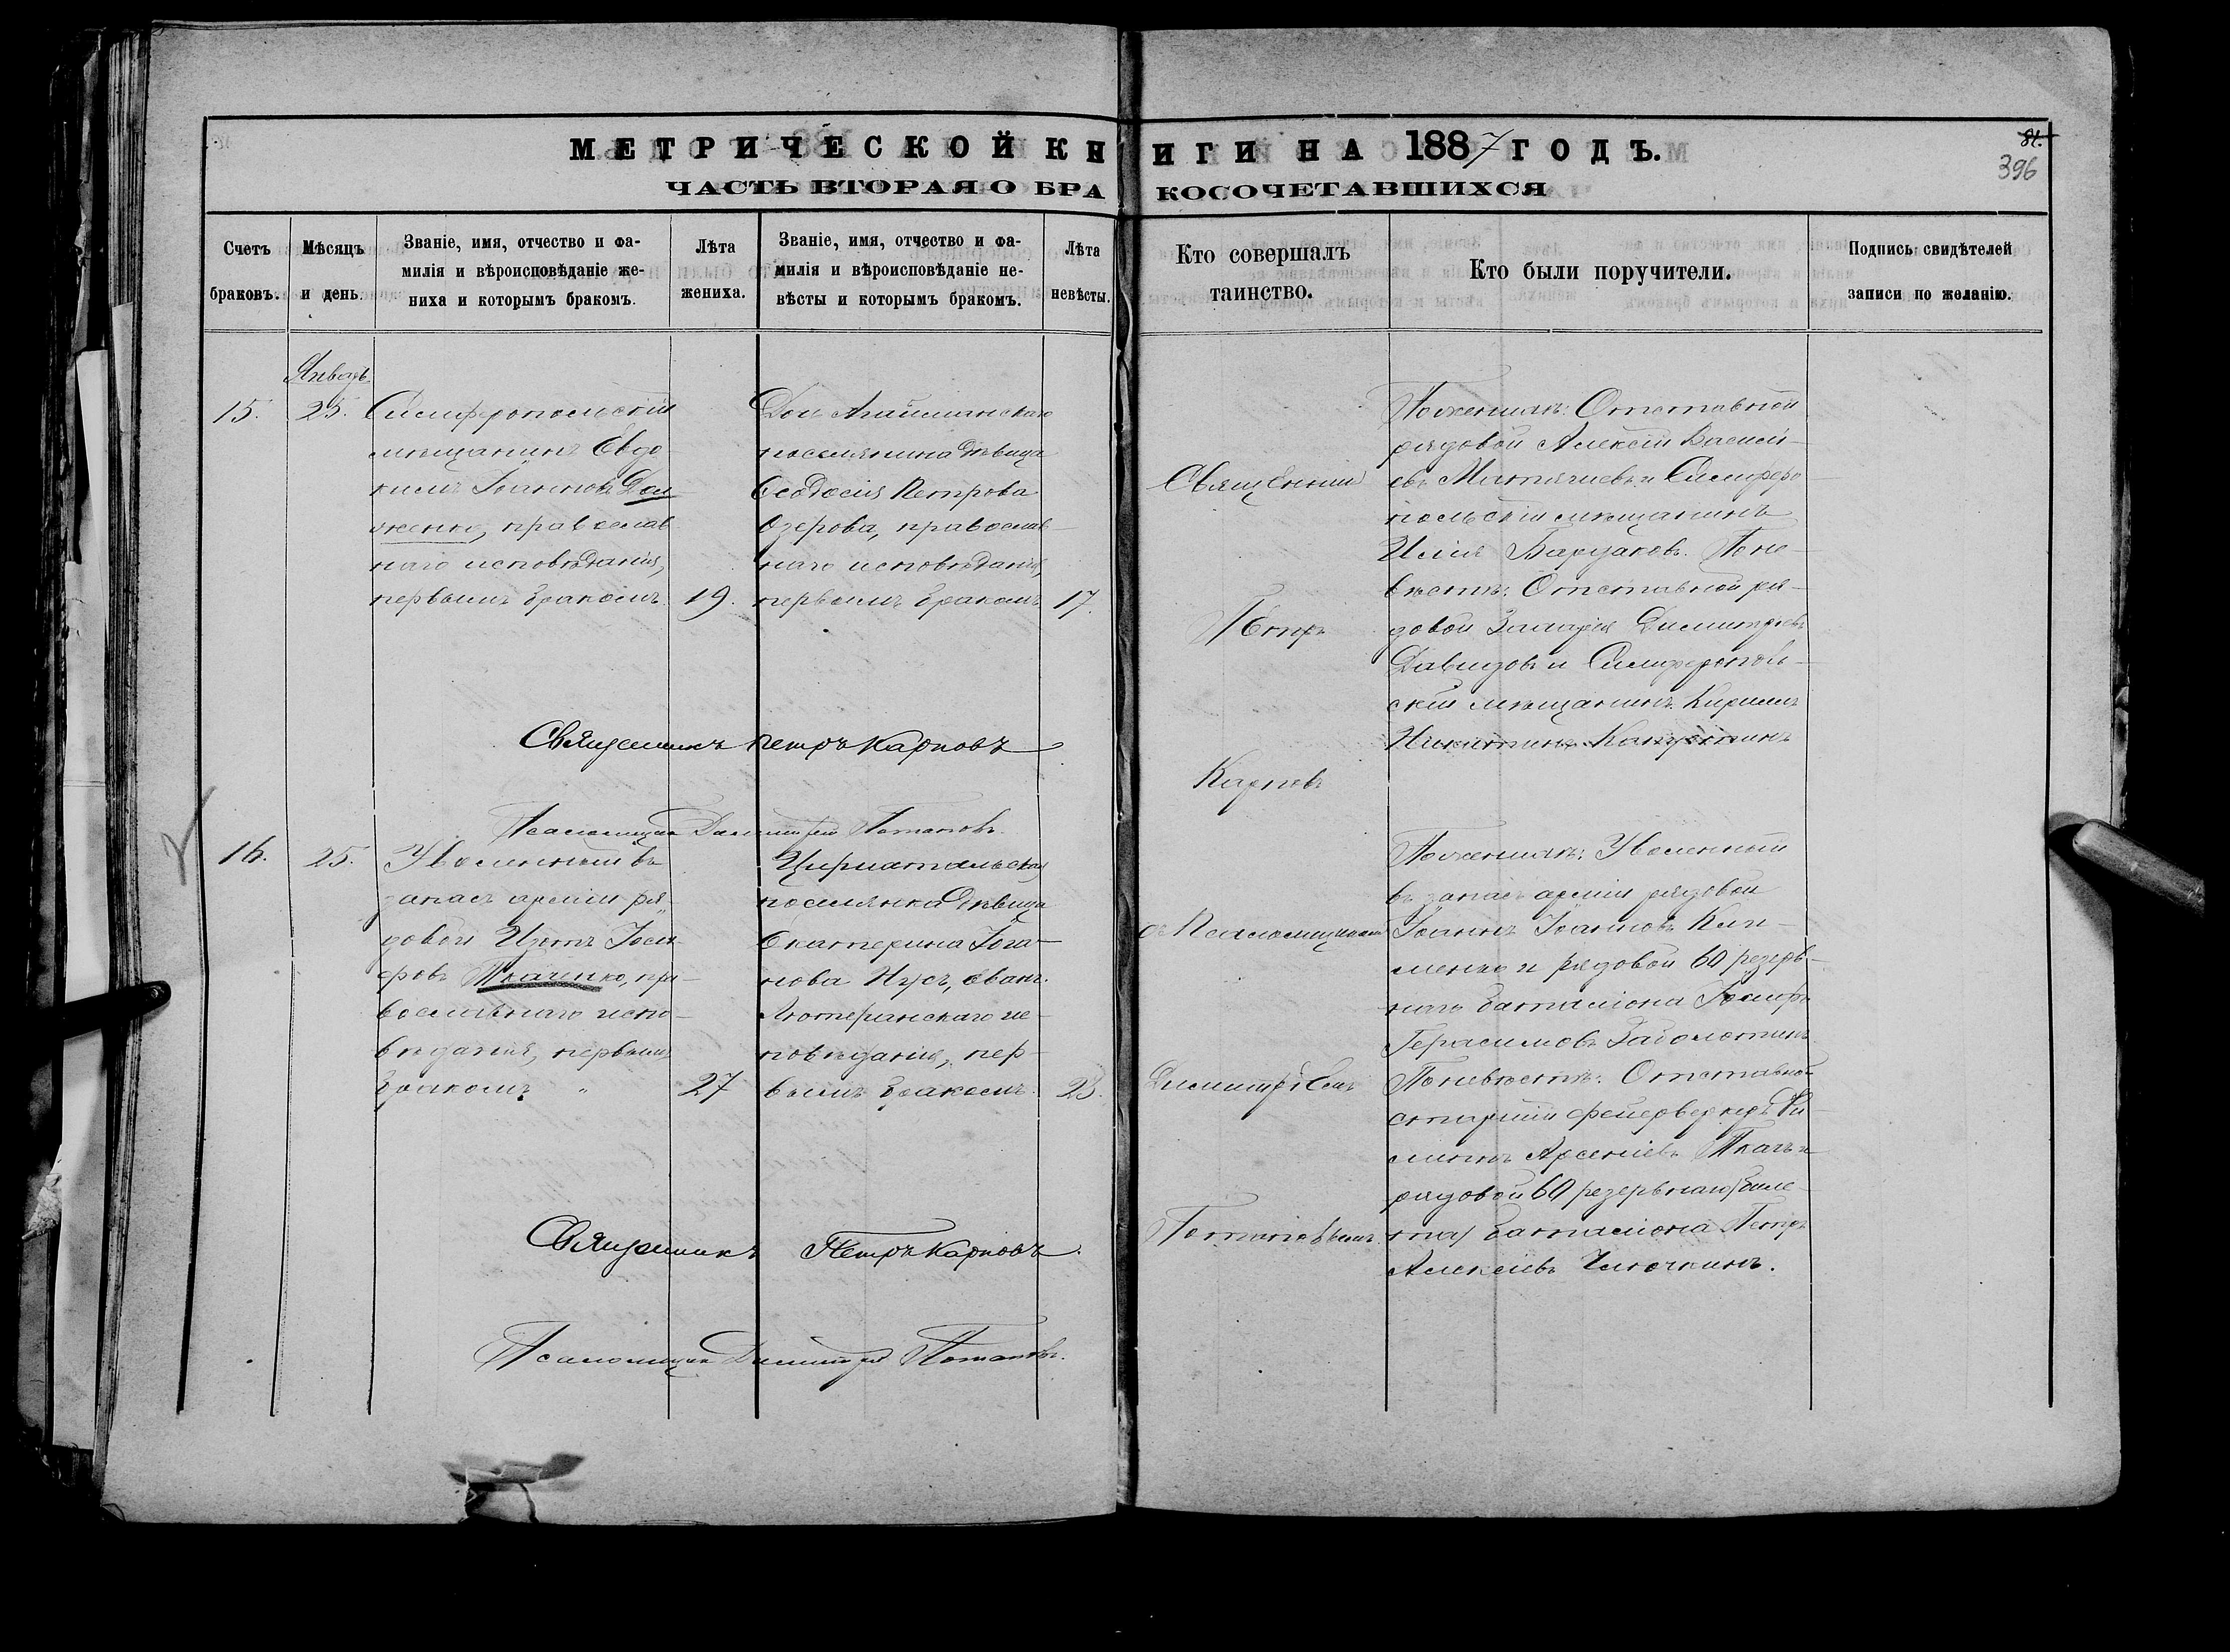 МЕТРИЧЕСКОЙ КНИГИ НА 1887 ГОДЪ.
ЧАСТЬ ВТОРАЯ О БРАКОСОЧЕТАВШИХСЯ
81.
396
Счетъ браковъ.
Мѣсяцъ и день.
Званіе, имя, отчество и фа-
милія и вѣроисповѣданіе же-
ниха и которымъ бракомъ.
Лѣта жениха.
Званіе, имя, отчество и фа-
милія и вѣроисповѣданіе не-
вѣсты и которымъ бракомъ.
Лѣта невѣсты.
Кто совершалъ
таинство.
Кто были поручители.
Подпись свидѣтелей
записи по желанію.
Январь
15.
25.
Симферопольскій
мѣщанинъ Евдо
кимъ Іоанновъ Дол
женко, православ
наго исповѣданія,
первымъ бракомъ.
19.
поселянина дѣвица
Ѳеодосія Петрова
Озерова, православ
наго исповѣданія,
первымъ бракомъ
17.
Священникъ
Петръ
Карповъ
По женихѣ: Отставной
рядовой Алексѣй Василь-
евъ и Симферо
польскій мѣщанинъ
Илія По не-
вѣстѣ: Отставной ря-
довой Захарія Димитріевъ
Давидовъ и Симферополь-
скій мѣщанинъ Кириллъ
Никитинъ Капустинъ
Священникъ Петръ Карповъ
Псаломщикъ Димитрій Потаповъ.
16.
25.
Уволенный въ
запасъ арміи ря
довой Изотъ Іоси
фовъ Ткаченко, пра-
вославнаго испо-
вѣданія, первымъ
бракомъ "
27
Цириштальская
поселянка дѣвица
Екатерина Іога-
нова Нусъ, еванг.
Лютеранскаго ис-
повѣданія, пер-
вымъ бракомъ.
23.
съ Псаломщикомъ
Димитріемъ
Потаповымъ.
По женихѣ: Уволенный
въ запасъ арміи рядовой
Іоаннъ Іоанновъ Кли-
менко и рядовой 60 резерв-
наго батталіона Іосифъ
Герасимовъ Заболотинъ
По невѣстѣ: Отставной
старшій фейерверкеръ Фи
липпъ Арсеніевъ Ткачъ и
рядовой 60 резервнаго
батталіона Петръ
Алексіевъ Клочкинъ.
Священникъ Петръ Карповъ.
Псаломщикъ Димитрій Потаповъ.